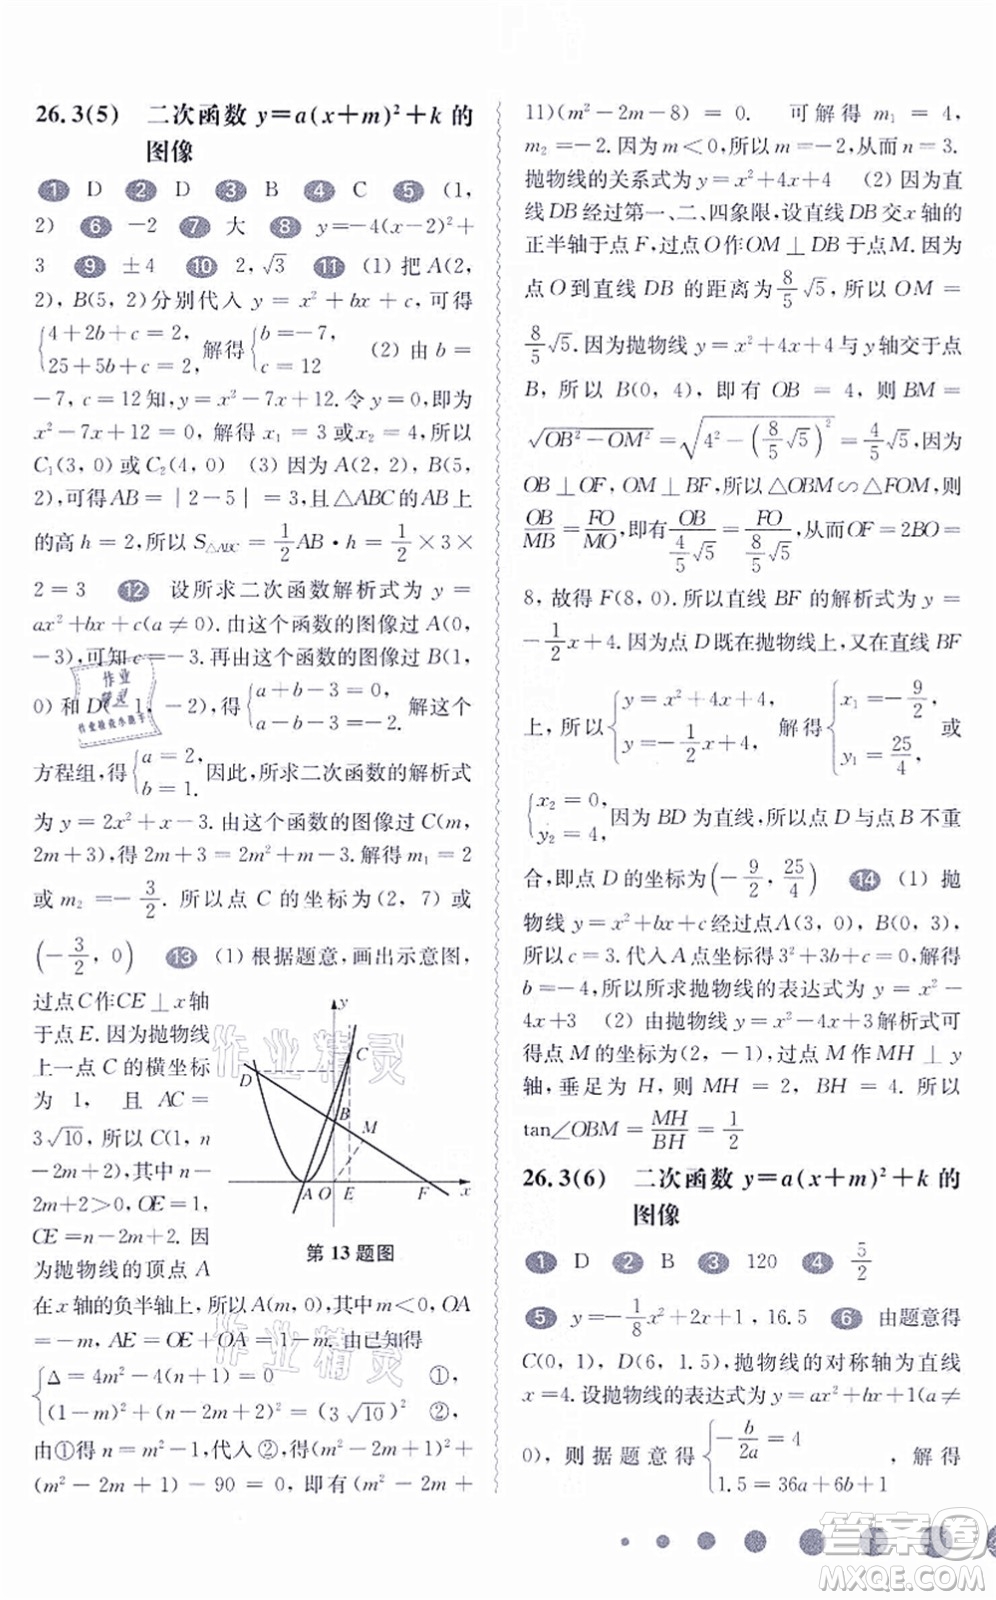 26.3(5) 二次函数 y=a(x+m)²+k 的
图像
1 D 2 D 3 B 4 C 5 (1,
2) 6 -2 7 大 8 y=-4(x-2)²+
3 9 ±4 10 2,√3 11 (1) 把 A(2,
2),B(5,2)分别代入 y=x²+bx+c,可得
{4+2b+c=2, 25+5b+c=2, 解得{b=-7, c=12 (2) 由 b=
-7,c=12知,y=x²-7x+12.令 y=0,即为
x²-7x+12=0,解得 x₁=3 或x₂=4,所以
C₁(3,0)或C₂(4,0) (3) 因为 A(2,2),B(5,
2),可得AB=|2-5|=3,且△ABC的AB上
的高 h=2,所以 S△ABC=1/2 AB·h=1/2×3×
2=3 12 设所求二次函数解析式为 y=
ax²+bx+c(a≠0).由这个函数的图像过 A(0,
-3),可知 c=-3.再由这个函数的图像过 B(1,
0)和 D(-1,-2),得{a+b-3=0, a-b-3=-2. 解这个
方程组,得{a=2, b=1. 因此,所求二次函数的解析式
为 y=2x²+x-3.由这个函数的图像过 C(m,
2m+3),得 2m+3=2m²+m-3.解得 m₁=2
或 m₂=-3/2. 所以点 C 的坐标为(2,7)或
(-3/2,0) 13 (1) 根据题意,画出示意图,
过点C作CE⊥x轴
于点 E.因为抛物线
上一点 C 的横坐标
为 1, 且 AC=
3√10,所以 C(1,n
-2m+2),其中 n-
2m+2>0,OE=1,
CE=n-2m+2.因
为抛物线的顶点 A
y
C
D
B
M
A O E F x
第 13 题图
在 x 轴的负半轴上,所以A(m,0),其中m<0,OA
=-m,AE=OE+OA=1-m.由已知得
{Δ=4m²-4(n+1)=0 ①,
(1-m)²+(n-2m+2)²=(3√10)² ②,
由①得 n=m²-1,代入②,得(m²-2m+1)²+
(m²-2m+1)-90=0,即有(m²-2m+
11)(m²-2m-8)=0. 可解得 m₁=4,
m₂=-2.因为 m<0,所以 m=-2,从而 n=3.
抛物线的关系式为 y=x²+4x+4 (2) 因为直
线DB经过第一、二、四象限,设直线DB交x轴的
正半轴于点 F,过点 O 作 OM⊥DB 于点 M.因为
点 O 到直线 DB 的距离为 8/5√5,所以 OM=
8/5√5.因为抛物线 y=x²+4x+4 与 y 轴交于点
B,所以 B(0,4),即有 OB=4,则 BM=
√OB²-OM²=√4²-(8/5√5)²=4/5√5,因为
OB⊥OF,OM⊥BF,所以△OBM∽△FOM,则
OB/MB=FO/MO,即有OB/(4/5√5)=FO/(8/5√5),从而OF=2BO=
8,故得 F(8,0).所以直线 BF 的解析式为 y=
-1/2x+4.因为点 D 既在抛物线上,又在直线 BF
上,所以{y=x²+4x+4, y=-1/2x+4, 解得{x₁=-9/2, y₁=25/4 或
{x₂=0, y₂=4, 因为 BD 为直线,所以点 D 与点 B 不重
合,即点 D 的坐标为(-9/2,25/4) 14 (1) 抛
物线 y=x²+bx+c 经过点A(3,0),B(0,3),
所以 c=3.代入 A 点坐标得 3²+3b+c=0.解得
b=-4,所以所求抛物线的表达式为 y=x²-
4x+3 (2) 由抛物线 y=x²-4x+3 解析式可
得点 M 的坐标为(2,-1),过点 M 作 MH⊥y
轴,垂足为 H,则 MH=2,BH=4. 所以
tan∠OBM=MH/BH=1/2
26.3(6) 二次函数 y=a(x+m)²+k 的
图像
1 D 2 B 3 120 4 5/2
5 y=-1/8x²+2x+1,16.5 6 由题意得
C(0,1),D(6,1.5),抛物线的对称轴为直线
x=4.设抛物线的表达式为 y=ax²+bx+1(a≠
0),则据题意得{-b/2a=4 1.5=36a+6b+1, 解得
作业
精灵
作业检查小助手
作业精灵
作业精灵
答案圈
MXQE.COM